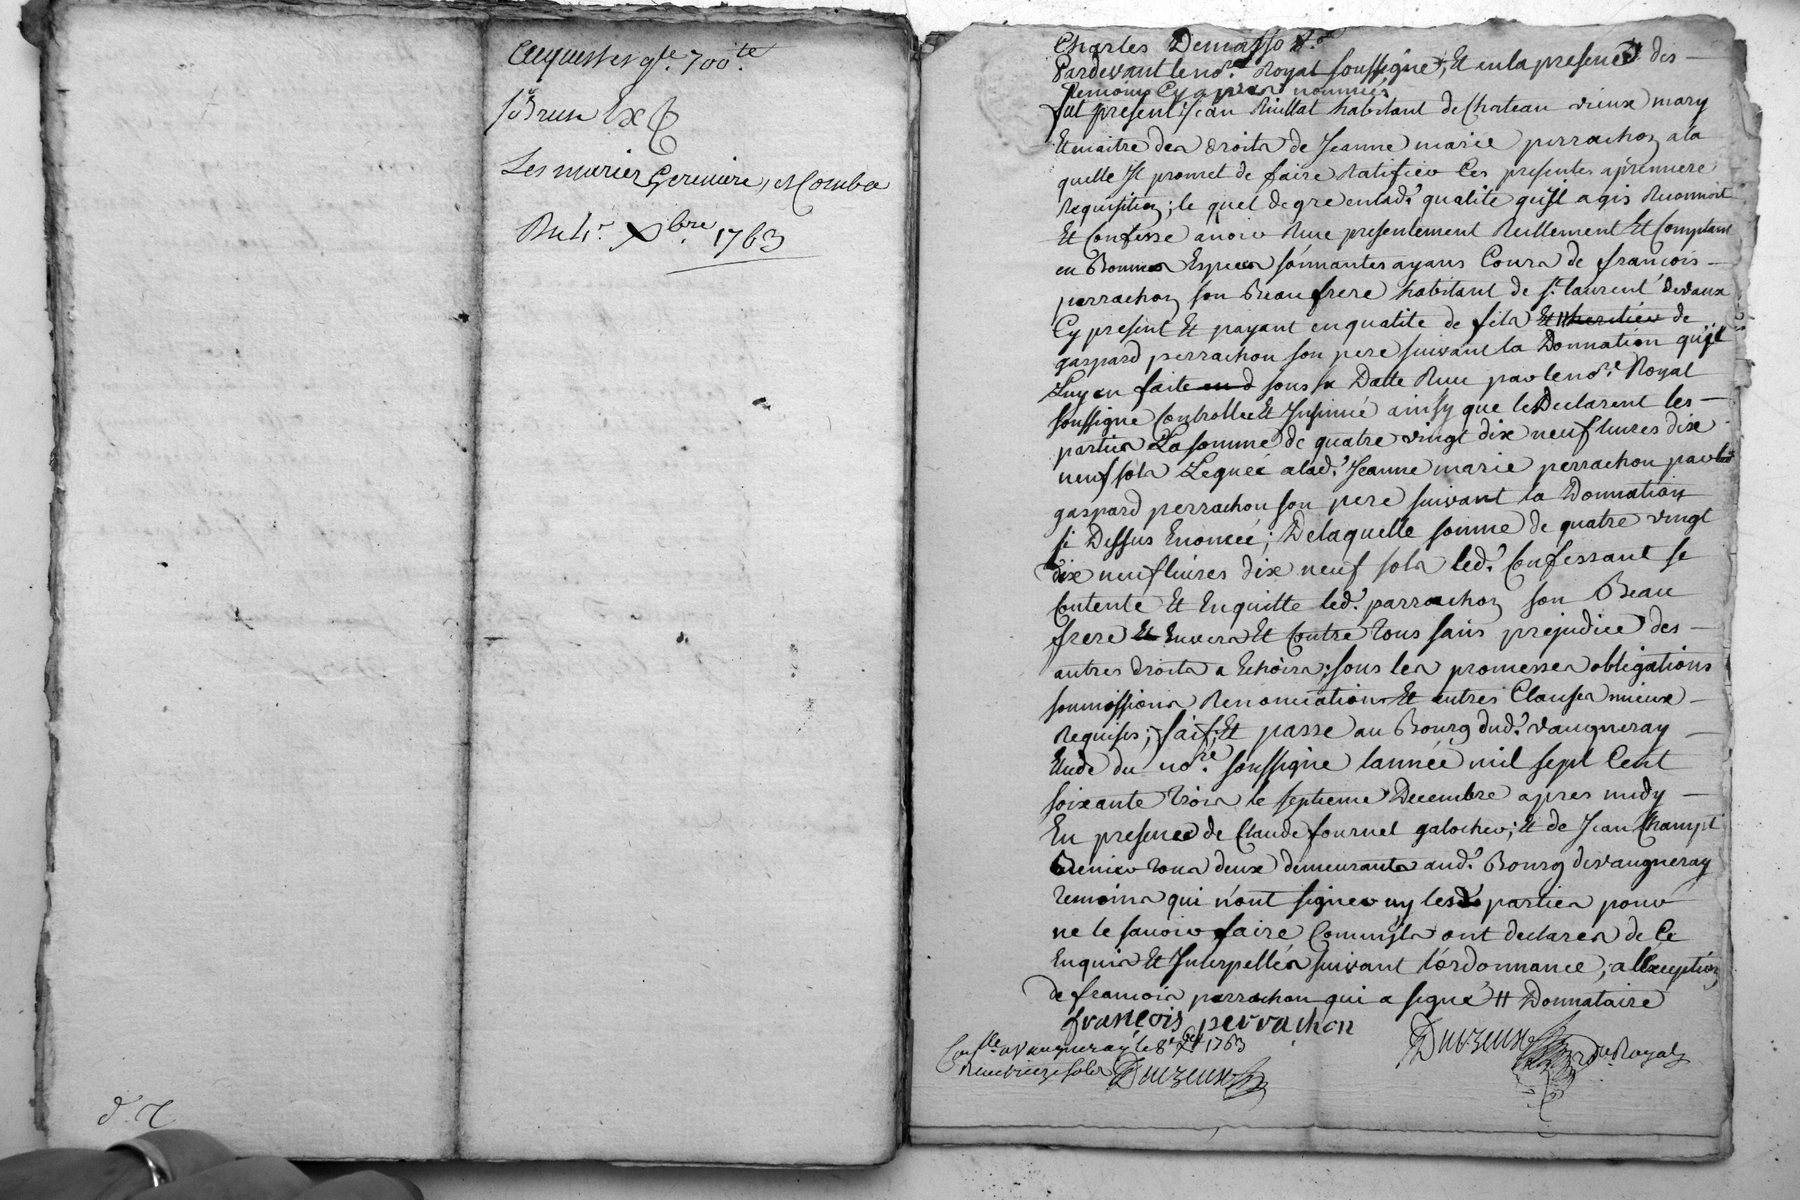 Acquest 700
Les mariez et Comba
Du 4e Xbre 1763
Charles Demasso
Pardevant le nore Royal soussigné, Et en la presence des
temoins Cy apres nommés
fut present Jean Riullat habitant de Chateau vieux mary
Et maitre des droits de Jeanne marie perrachon a la
quelle Il promet de faire Ratifier Ces presentes a premiere
Requisition; le quel de gre en lad. qualite qu'Il agis Reconnoit
Et Confesse avoir Reçue presentement Reellement Et Comptant
en Bonnes Especes sonnantes ayans Cours de françois
perrachon son Beau frere habitant de St laurent devaux
Cy present Et payant en qualite de fils Et heritier de
gaspard perrachon son pere suivant la Donnation qu'il
Luy en faite en d sous sa Datte Reçue par le nore Royal
soussigné Controllee Et Insinué ainsy que le Declarent les
parties La somme de quatre vingt dix neuf livres dix
neuf sols Leguée a lad. Jeanne marie perrachon par led.
gaspard perrachon son pere suivant la Donnation
si Dessus Enoncée; De laquelle somme de quatre vingt
dix neuf livres dix neuf sols led. Confessant se
Contente Et En quitte led. parrachon son Beau
frere Et Envers Et Contre tous sans prejudice des
autres droits a Echoirs; sous les promesses obligations
soumissions Renonciations Et autres Clauses mieux
Requises; fait Et passe au Bourg dud. vaugneray
Etude du nore soussigne lannée mil sept Cent
soixante trois le septieme Decembre apres midy
En presence de Claude fournel galochier; Et de Jean Champt
Grenier tous deux demeurants aud. Bourg de vaugneray
temoins qui n'ont signer ny lesd. parties pour
ne le savoir faire Comm'Ils ont declarés de Ce
Enquis Et Interpellés suivant l'ordonnance, a l'exception
de francois perrachon qui a signé # Donnataire
françois perrachon
Conlle a Vaugneray le 8e Xbre 1763
Reçu treize sols Duvzeux
Duvzeux nore Royal